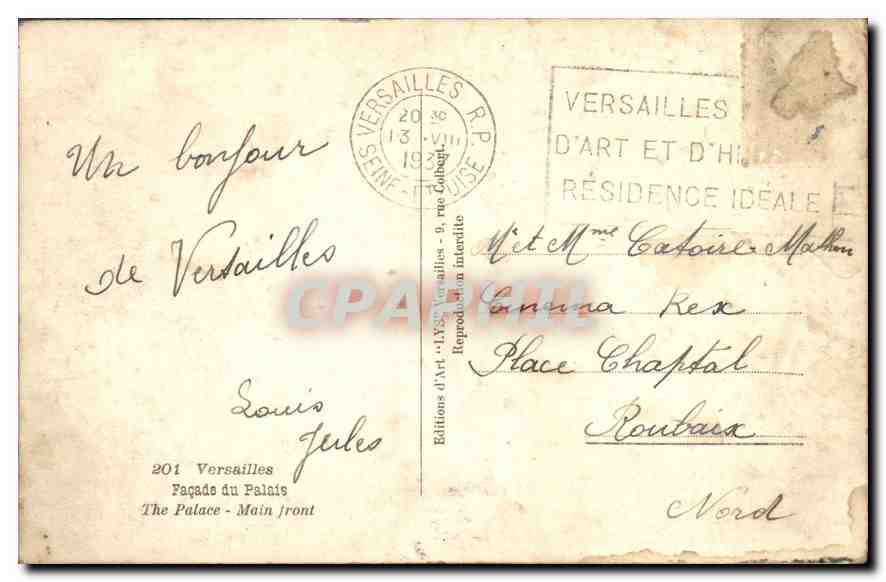 Un bonjour
de Versailles
Louis
Jules
201 Versailles
Façade du Palais
The Palace - Main front
VERSAILLES R.P.
20 30
13 VIII
193
SEINE-ET-OISE
VERSAILLES
D'ART ET D'HI
RÉSIDENCE IDÉALE
Editions d'Art "LYS" Versailles - 9, rue Colbert.
Reproduction interdite
Mr et Mme Catoire-Mathon
Cinema Rex
Place Chaptal
Roubaix
Nord
CPAPHIL